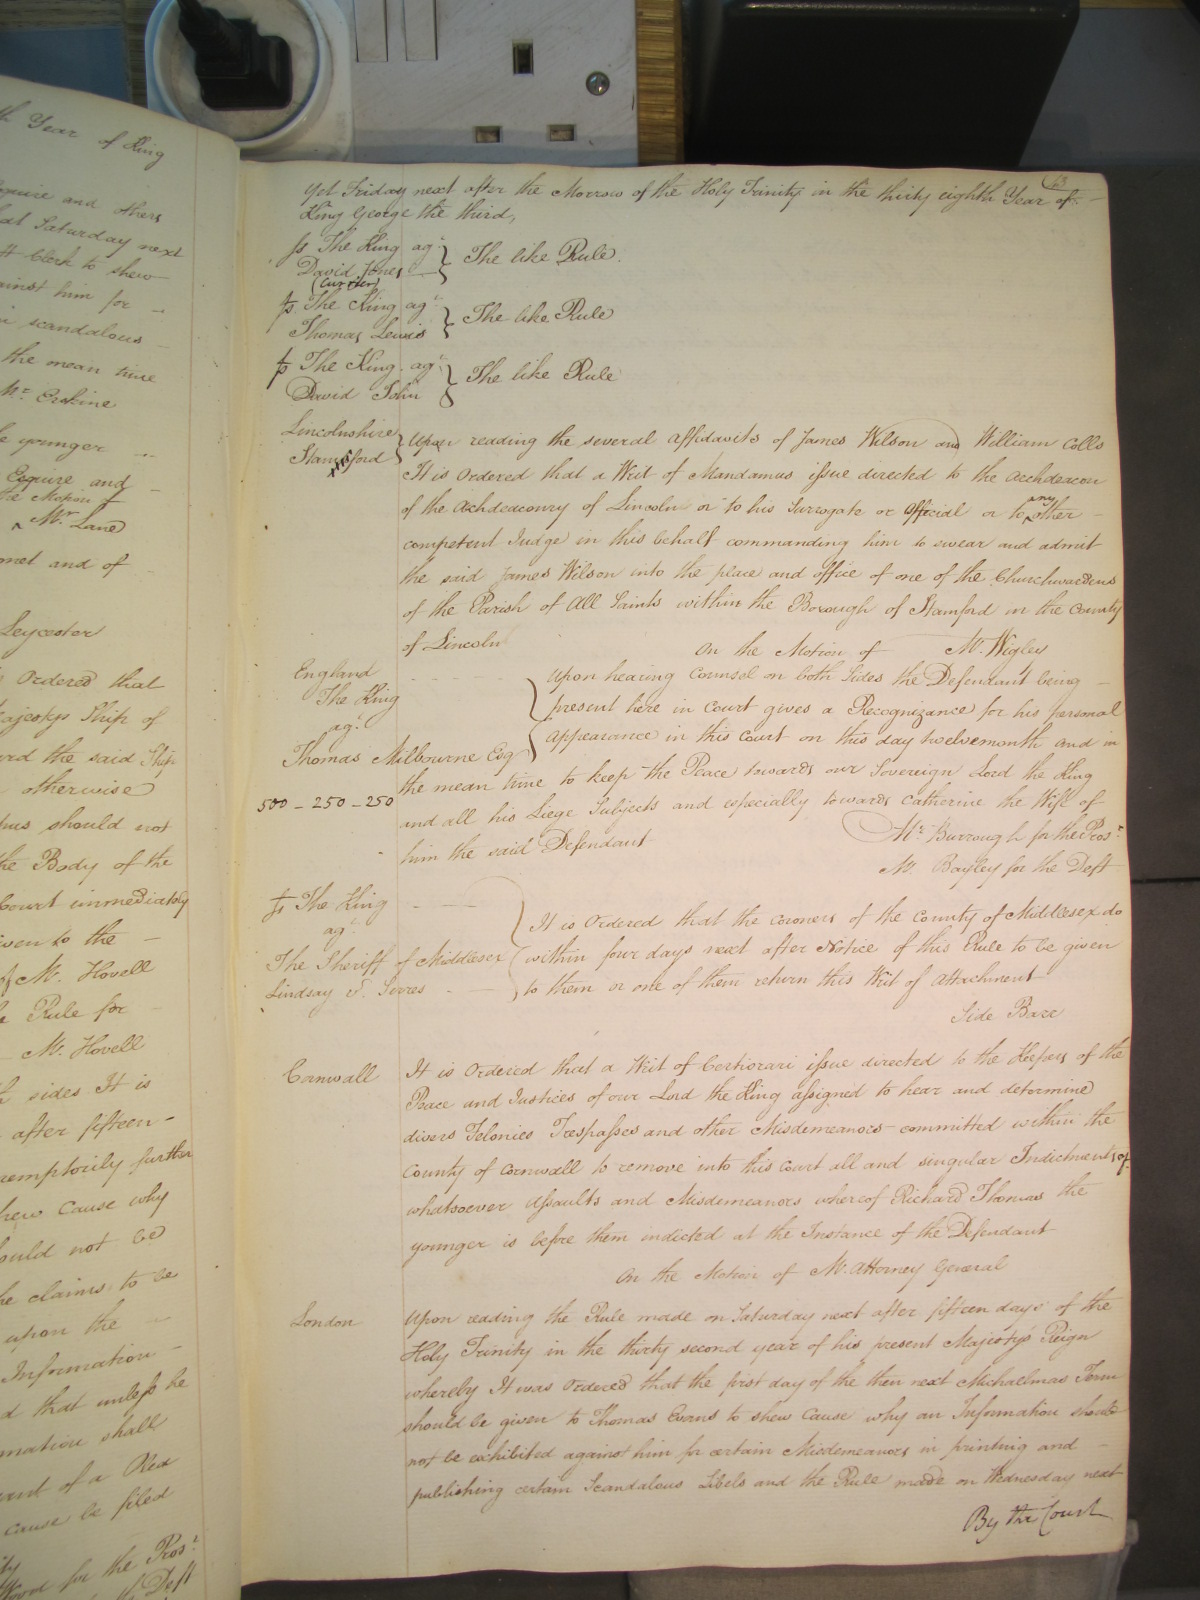 th Year of King
Esquire and others
that Saturday next
Clerk to shew
against him for
scandalous
the mean time
Mr. Erskine
younger
Esquire and
the Motion of
Mr. Lane
and of
Leycester
Ordered that
Majestys Ship of
the said Ship
otherwise
should not
the Body of the
Court immediately
given to the
Mr. Hovell
Rule for
Mr. Hovell
sides It is
after fifteen
peremptorily further
shew Cause why
should not be
he claims to be
upon the
Information
that unless he
Information shall
of a Plea
cause be filed
for the Prosr.
Deft
43
Yet Friday next after the Morrow of the Holy Trinity in the thirty eighth Year of
King George the third,
fs The King agt.
David Jones
(Currier)
The like Rule.
fs The King agt.
Thomas Lewis
The like Rule
fs The King agt.
David John
The like Rule
Lincolnshire
Stamford
Upon reading the several Affidavits of James Wilson and William Colls
It is Ordered that a Writ of Mandamus issue directed to the Archdeacon
of the Archdeaconry of Lincoln or to his Surrogate or Official or to any other
competent Judge in this behalf commanding him to swear and admit
the said James Wilson into the place and office of one of the Churchwardens
of the Parish of All Saints within the Borough of Stamford in the County
of Lincoln
On the Motion of Mr. Wigley
England
The King
agt.
Thomas Milbourne Esqr
500 - 250 - 250
Upon hearing Counsel on both Sides the Defendant being
present here in Court gives a Recognizance for his personal
Appearance in this Court on this day twelvemonth and in
the mean time to keep the Peace towards our Sovereign Lord the King
and all his Liege Subjects and especially towards Catherine the Wife of
him the said Defendant
Mr. Burrough for the Prosr.
Mr. Bayley for the Deft
fs The King
agt.
The Sheriff of Middlesex
Lindsay v. Serres
It is Ordered that the Coroners of the County of Middlesex do
within four days next after Notice of this Rule to be given
to them or one of them return this Writ of Attachment
Side Barr
Cornwall
It is Ordered that a Writ of Certiorari issue directed to the Keepers of the
Peace and Justices of our Lord the King assigned to hear and determine
divers Felonies Trespasses and other Misdemeanors committed within the
County of Cornwall to remove into this Court all and singular Indictments of
whatsoever Assaults and Misdemeanors whereof Richard Thomas the
younger is before them indicted at the Instance of the Defendant
On the Motion of Mr. Attorney General
London
Upon reading the Rule made on Saturday next after fifteen days of the
Holy Trinity in the thirty second year of his present Majesty's Reign
whereby It was Ordered that the first day of the then next Michaelmas Term
should be given to Thomas Evans to shew Cause why an Information should
not be exhibited against him for certain Misdemeanors in printing and
publishing certain Scandalous Libels and the Rule made on Wednesday next
By the Court